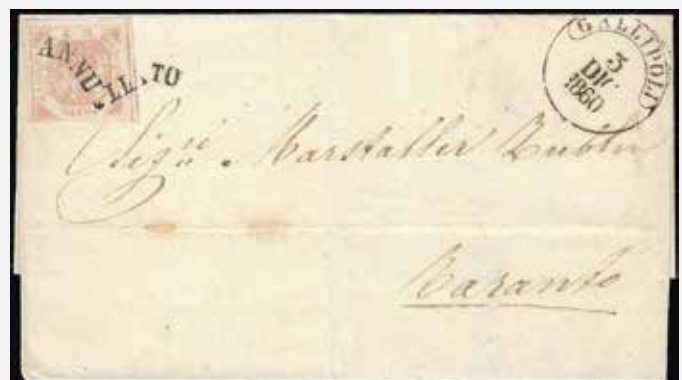 ANNULLATO
GALLIPOLI
5
DIC.
1860
Sig.ri Marstaller Zublin
Taranto